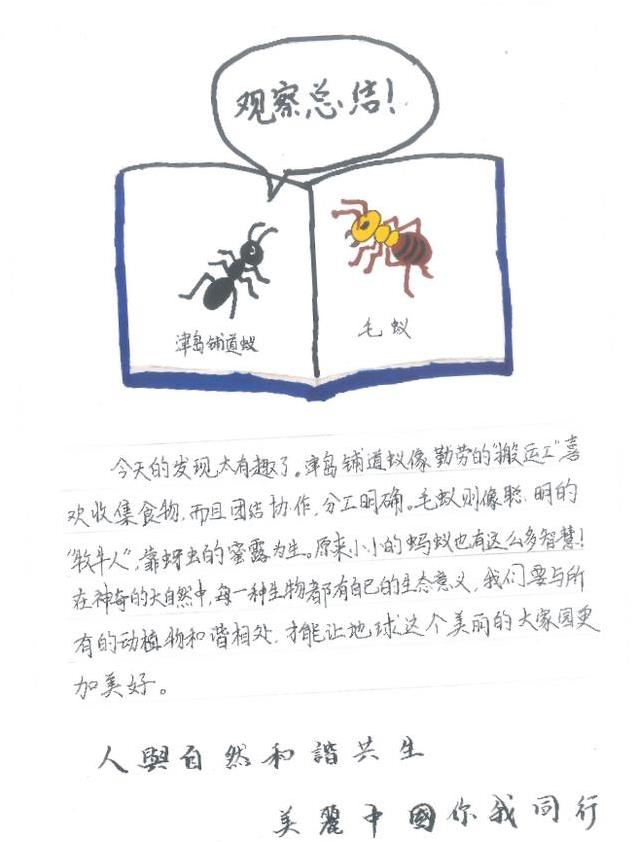 观察总结！
津岛铺道蚁
毛蚁
今天的发现太有趣了。津岛铺道蚁像勤劳的“搬运工”喜
欢收集食物，而且团结协作，分工明确。毛蚁则像聪明的
“牧牛人”，靠蚜虫的蜜露为生。原来小小的蚂蚁也有这么多智慧！
在神奇的大自然中，每一种生物都有自己的生态意义，我们要与所
有的动植物和谐相处，才能让地球这个美丽的大家园更
加美好。
人與自然和諧共生
美麗中國你我同行